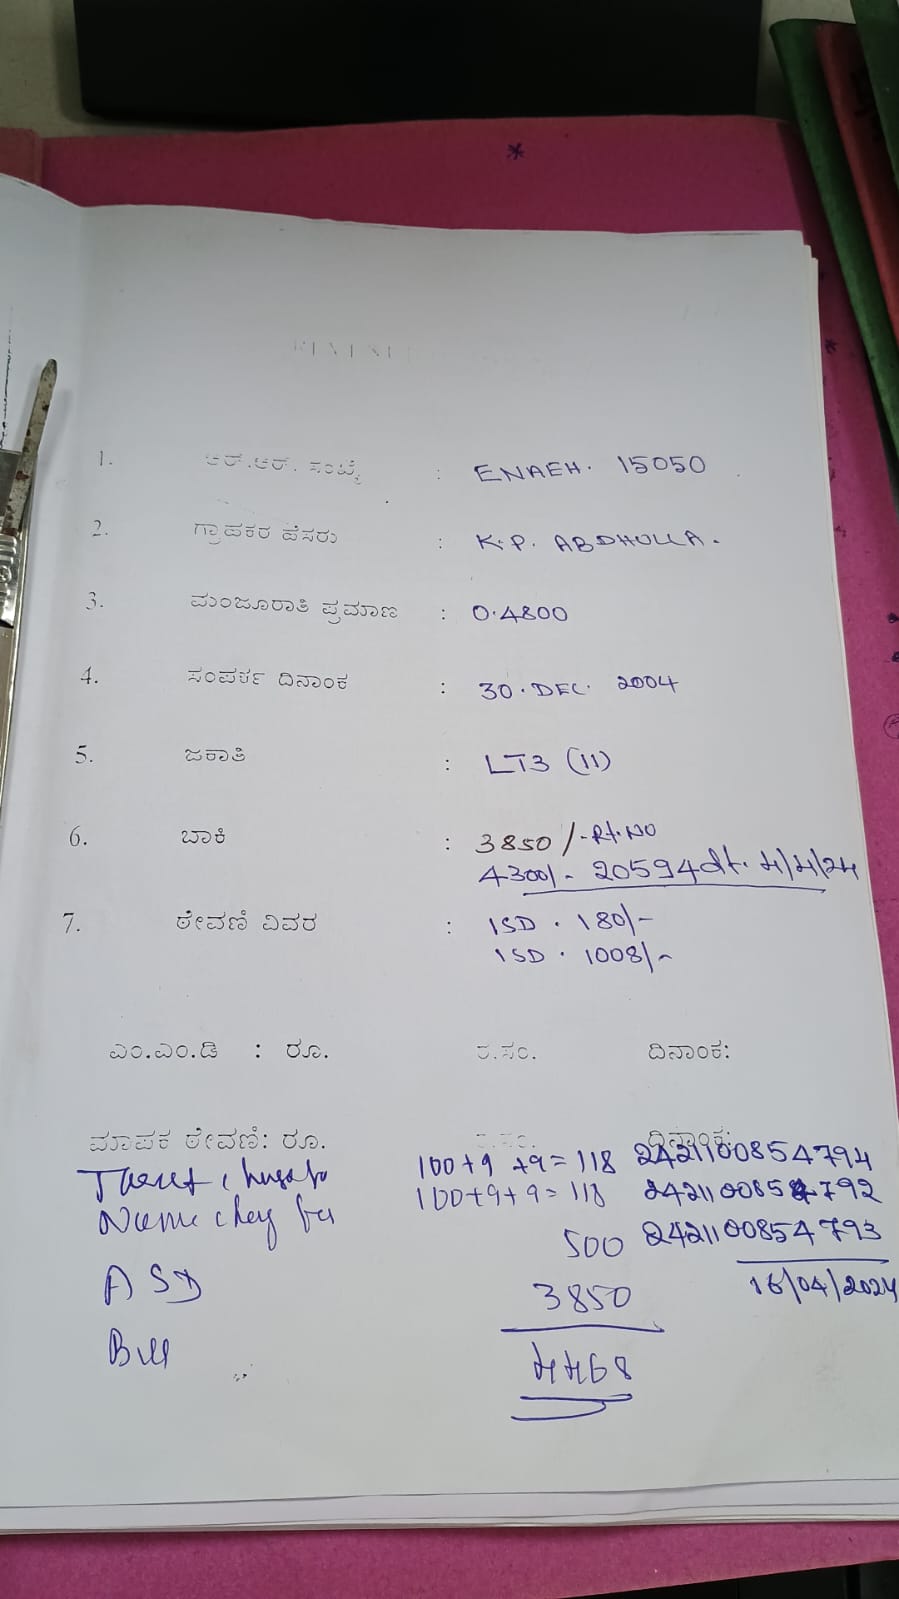 1. ಆರ್.ಆರ್. ಸಂಖ್ಯೆ : ENAEH. 15050
2. ಗ್ರಾಹಕರ ಹೆಸರು : K.P. ABDHULLA.
3. ಮಂಜೂರಾತಿ ಪ್ರಮಾಣ : 0.4800
4. ಸಂಪರ್ಕ ದಿನಾಂಕ : 30.DEC. 2004
5. ಜಕಾತಿ : LT3 (11)
6. ಬಾಕಿ : 3850/- Rt.NO
4300/- 20594 dt. 4/4/24
7. ಠೇವಣಿ ವಿವರ : ISD . 180/-
ISD . 1008/-
ಎಂ.ಎಂ.ಡಿ : ರೂ. ರ.ಸಂ. ದಿನಾಂಕ:
ಮಾಪಕ ಠೇವಣಿ: ರೂ. ರ.ಸಂ. ದಿನಾಂಕ:
100+9+9=118 2421100854794
Name 100+9+9=118 2421100854792
500 2421100854793
ASD 3850 16/04/2024
Bill 4468